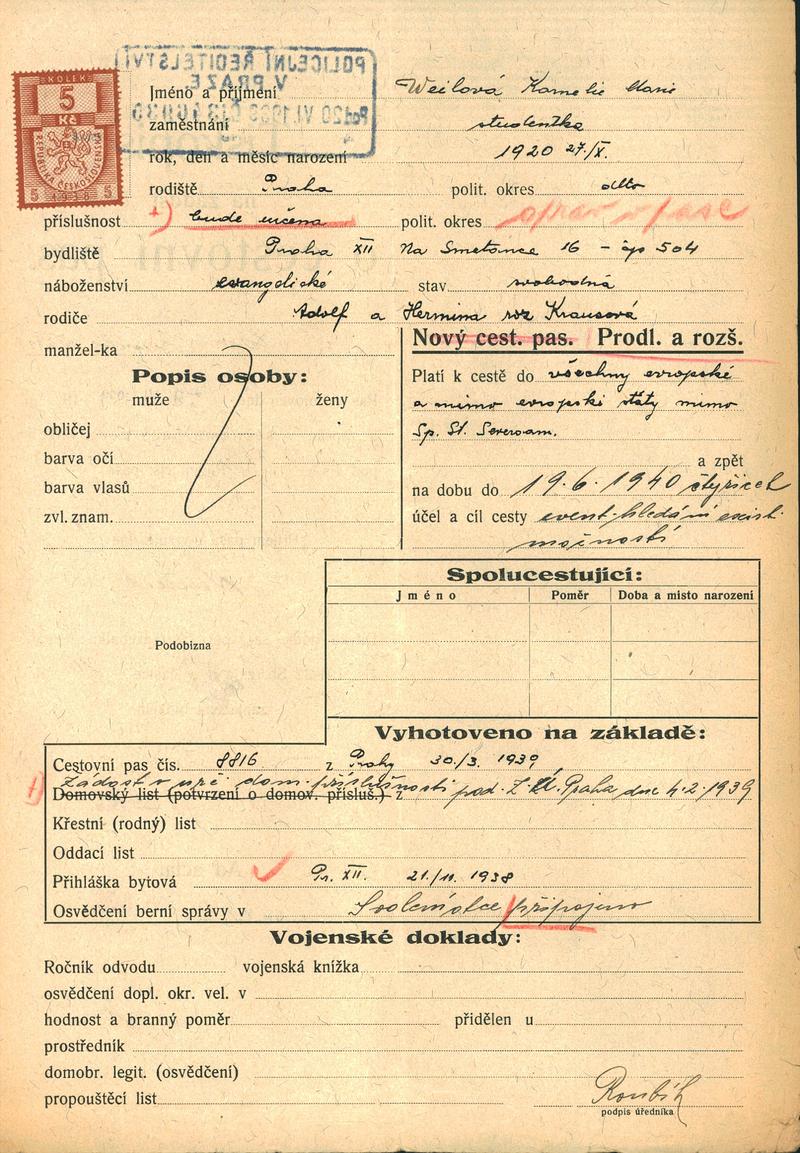 KOLEK
5
Kč
REPUBLIKA ČESKOSLOVENSKÁ
5 1938 5
POLICEJNÍ ŘEDITELSTVÍ
V PRAZE
Jméno a příjmení Weilová Kornelie Marie
zaměstnání studentka
rok, den a měsíc narození 1920 27./X.
rodiště Praha polit. okres dtto
příslušnost +) bude určena polit. okres oprav v pase
bydliště Praha XII Na Smetance 16 – čp 504
náboženství evangelické stav svobodná
rodiče Adolf a Hermina roz Krausová
manžel-ka
Nový cest. pas. Prodl. a rozš.
Popis osoby:
muže ženy
obličej
barva očí
barva vlasů
zvl. znam.
Platí k cestě do všechny evropské
a mimo evropské státy mimo
Sp. St. Severoam.
a zpět
na dobu do 19.6.1940 čtyřicet
účel a cíl cesty event. hledání exist.
možností
Podobizna
Spolucestující:
Jméno Poměr Doba a místo narození
Vyhotoveno na základě:
Cestovní pas čís. 8816 z Prahy 30/3. 1939
+) Žádost v urč. dom. příslušnosti pod. Z.Ú. Praha dne 4.2.1939
Domovský list (potvrzení o domov. přísluš.) z
Křestní (rodný) list
Oddací list
Přihláška bytová Pr. XII. 21./11. 1938
Osvědčení berní správy v Svolení otce připojeno
Vojenské doklady:
Ročník odvodu vojenská knížka
osvědčení dopl. okr. vel. v
hodnost a branný poměr přidělen u
prostředník
domobr. legit. (osvědčení)
propouštěcí list
Roubík
podpis úředníka